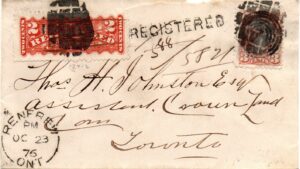 REGISTERED
5821
Thos H. Johnston Esq
Assistant Crown Land
Com
Toronto
RENFREW
PM
OC 23
76
ONT